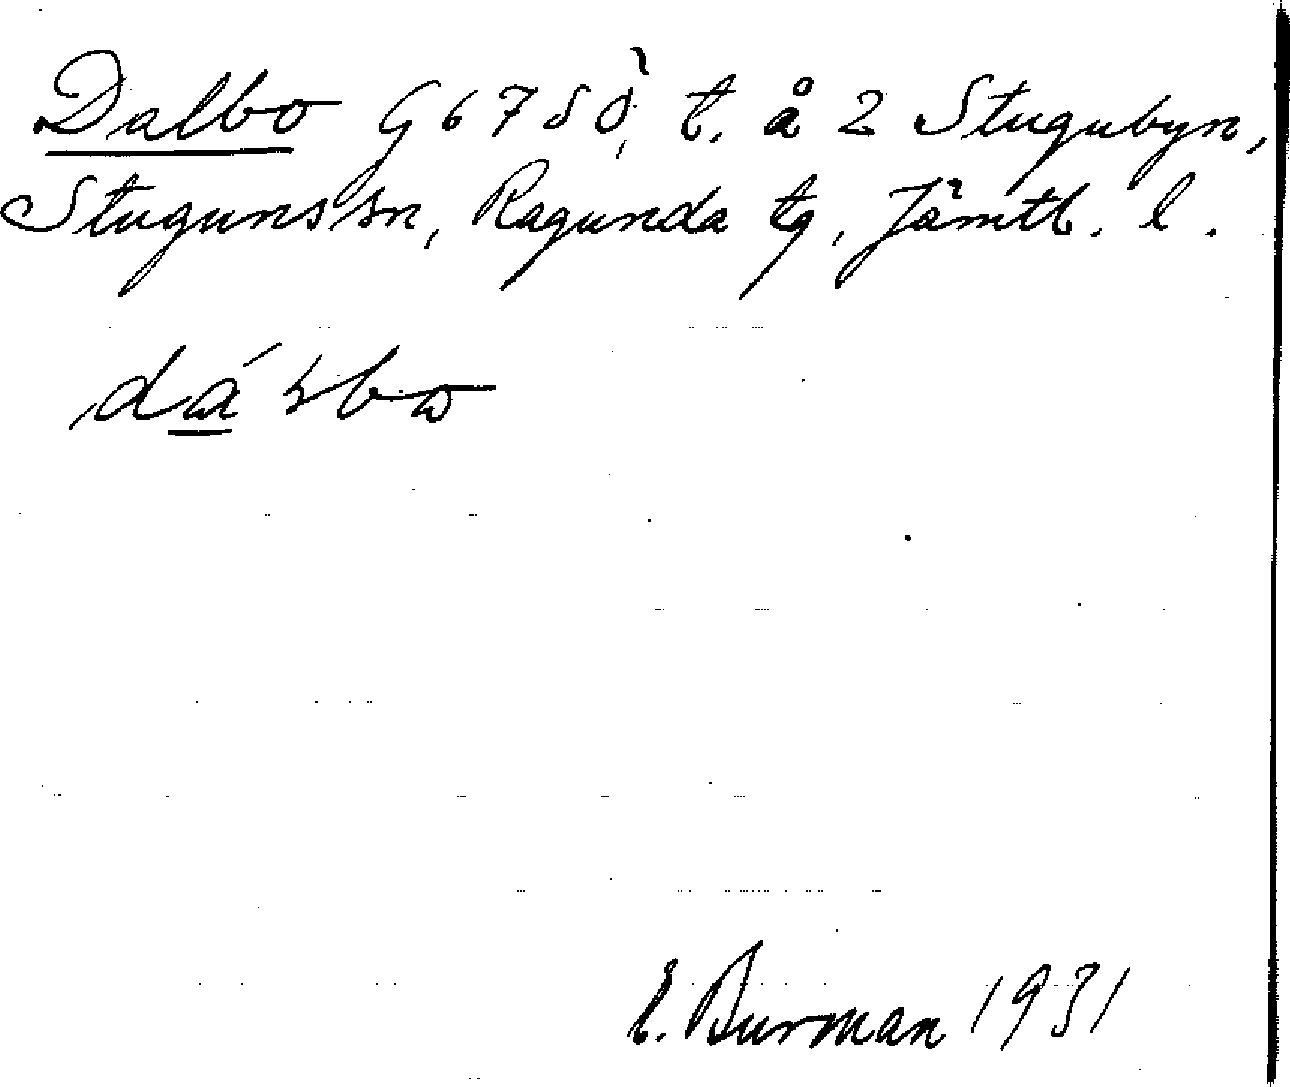 Dalbo G 6 7 S Ö, t. å 2 Stugubyn,
Stuguns sn, Ragunda tg, Jämtl. l.
E. Burman 1931